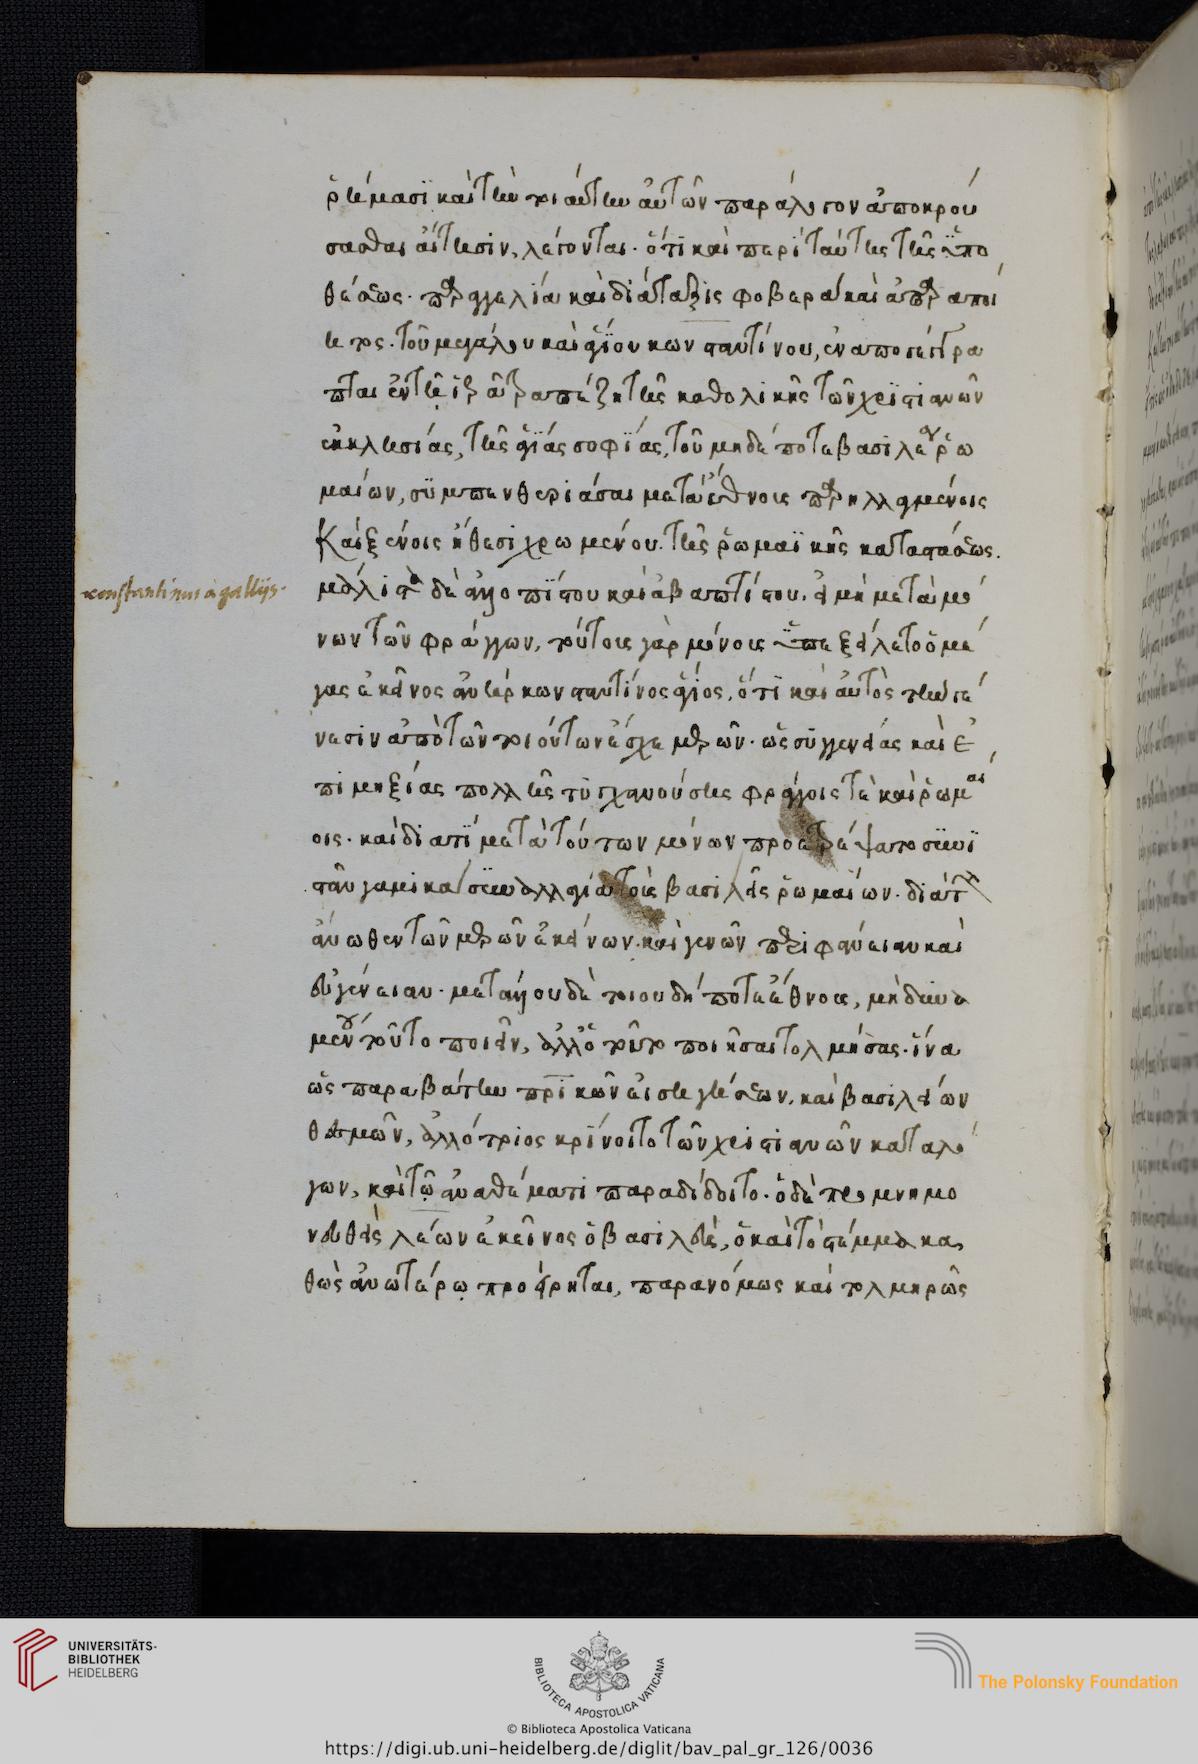 ῥήμασι καὶ τὴν τοιαύτην αὐτῶν παράλογον ἀποκρού
σασθαι αἴτησιν, λέγοντα. ὅτι καὶ περὶ ταύτης τῆς ὑπο
θέσεως. παραγγελία καὶ διάταξις φοβερὰ καὶ ἀπαραποί
ητος. τοῦ μεγάλου καὶ ἁγίου κωνσταντίνου, ἐναπογέγρα
πται ἐν τῇ ἱερᾷ τραπέζῃ τῆς καθολικῆς τῶν χριστιανῶν
ἐκκλησίας, τῆς ἁγίας σοφίας, τοῦ μηδέποτε βασιλέα ῥω
μαίων, συμπενθεριάσαι μετὰ ἔθνους παρηλλαγμένοις
καὶ ξένοις ἤθεσι χρωμένου. τῆς ῥωμαϊκῆς καταστάσεως.
μάλιστα δὲ ἀλλοπίστου καὶ ἀβαπτίστου. εἰ μὴ μετὰ μό
νων τῶν φράγγων, τούτοις γὰρ μόνοις ὑπεξείλετο ὁ μέ
γας ἐκεῖνος ἀνὴρ κωνσταντίνος ἅγιος, ὅτι καὶ αὐτὸς τὴν γέ
νεσιν ἀπὸ τῶν τοιούτων ἔσχε μερῶν. ὡς συγγενείας καὶ ἐ
πιμιξίας πολλῆς τυγχανούσης φράγγοις τε καὶ ῥωμαί
οις. καὶ διατί μετὰ τούτων μόνων προετρέψατο συνι
στᾶν γαμικὰ συναλλάγια τοὺς βασιλεῖς ῥωμαίων. διὰ τὴν
ἄνωθεν τῶν μερῶν ἐκείνων καὶ γενῶν περιφάνειαν καὶ
εὐγένειαν. μετ' ἄλλου δὲ τοιουδήποτε ἔθνους, μὴ δυνα
μένου τοῦτο ποιεῖν, ἀλλ' ὁ τοῦτο ποιῆσαι τολμήσας. ἵνα
ὡς παραβάτην πατρικῶν εἰσηγήσεων, καὶ βασιλείων
θεσμῶν, ἀλλότριος κρίνοιτο τῶν χριστιανῶν καταλό
γων, καὶ τῷ ἀναθέματι παραδίδοιτο. ὁ δὲ προμνημο
νευθεὶς λέων ἐκεῖνος ὁ βασιλεὺς, ὁ καὶ τὸ στέμμα κα
θὼς ἀνωτέρω προείρηται, παρανόμως καὶ τολμηρῶς
constantinus à gallijs.
UNIVERSITÄTS-
BIBLIOTHEK
HEIDELBERG
BIBLIOTECA APOSTOLICA VATICANA
The Polonsky Foundation
© Biblioteca Apostolica Vaticana
https://digi.ub.uni-heidelberg.de/diglit/bav_pal_gr_126/0036